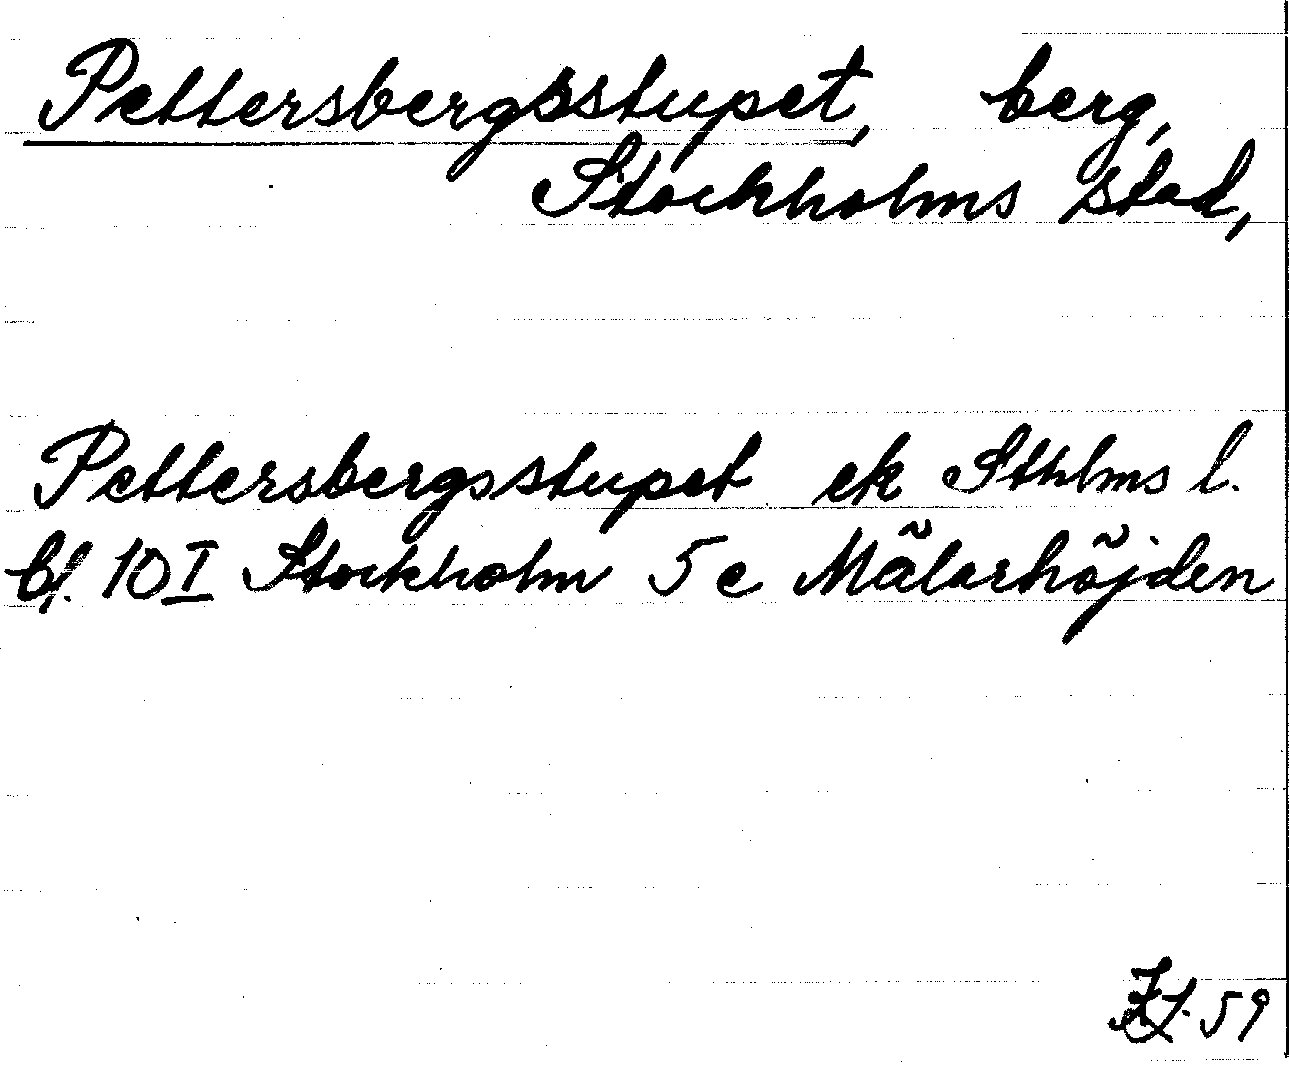 Pettersbergsstupet, berg,
Stockholms stad,
Pettersbergsstupet ek Sthlms l.
bl. 10 I Stockholm 5 e Mälarhöjden
59